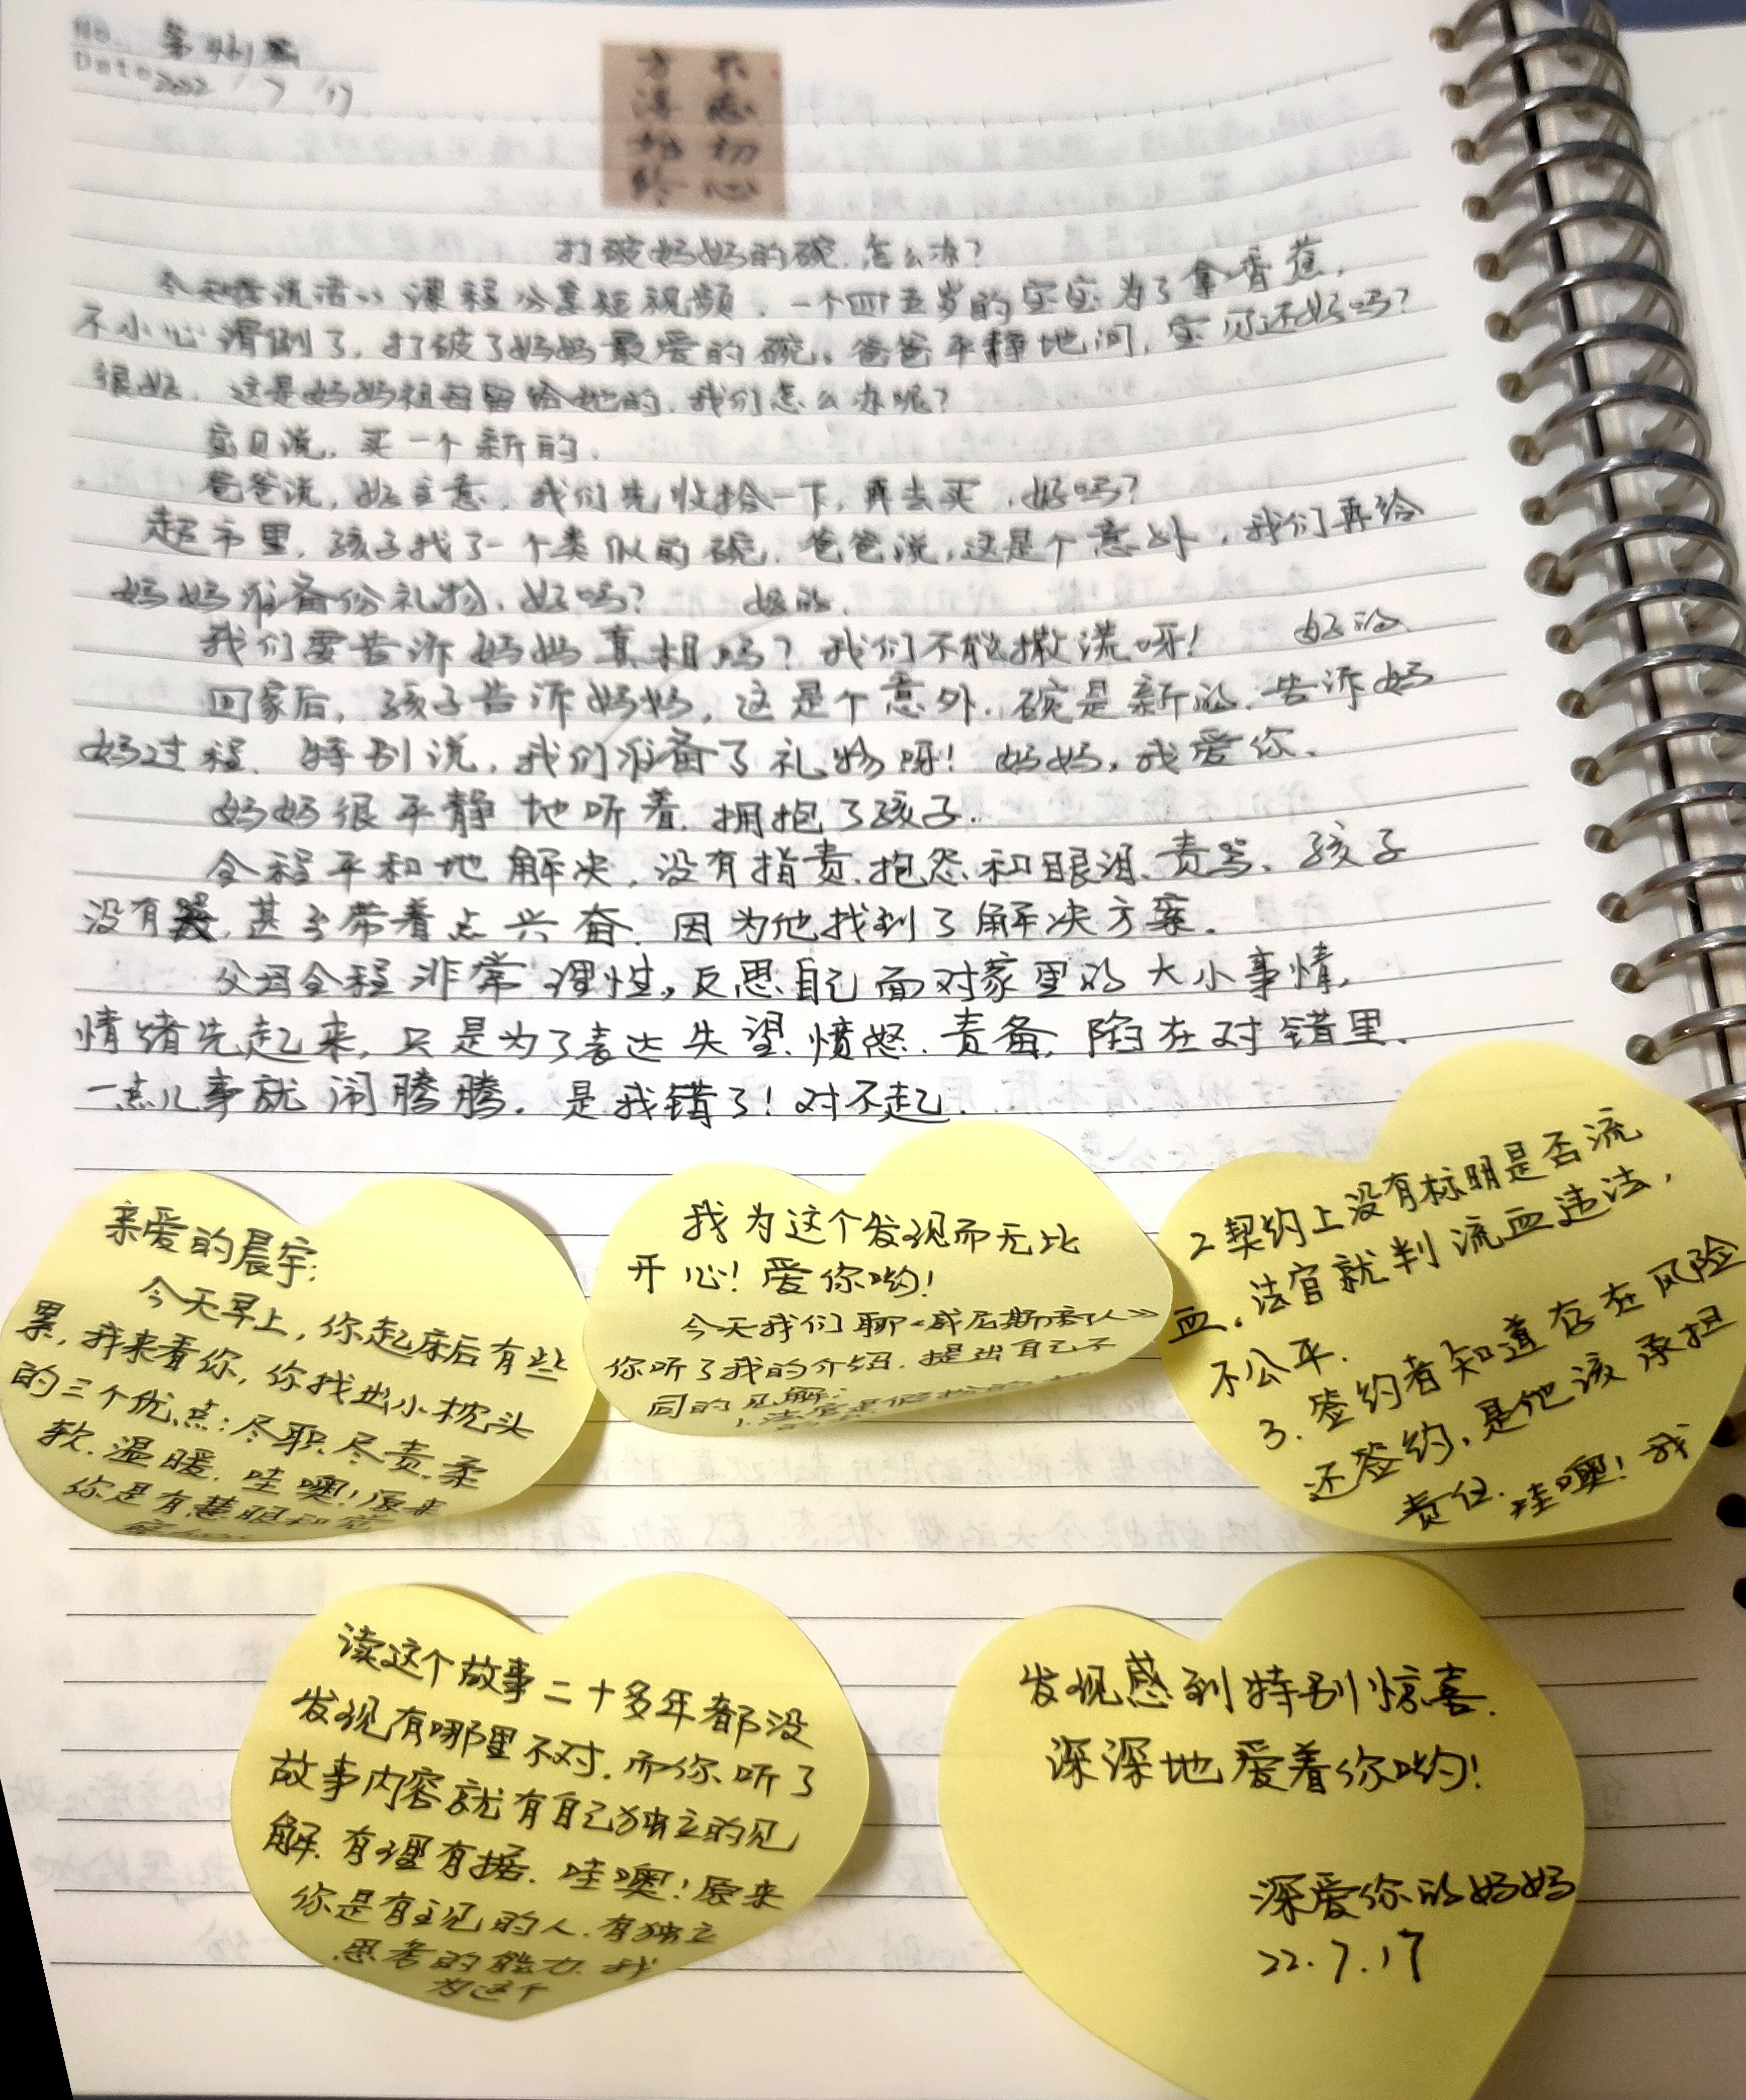 No.
Date 2022/7/17
不忘初心
方得始终
打破妈妈的碗,怎么办?
课程分享短视频,一个四五岁的宝宝为了拿香蕉,
不小心滑倒了,打破了妈妈最爱的碗。爸爸平静地问,宝贝还好吗?
很好。这是妈妈祖母留给她的,我们怎么办呢?
宝贝说,买一个新的。
爸爸说,好主意,我们先收拾一下,再去买,好吗?
超市里,孩子找了一个类似的碗。爸爸说,这是个意外,我们再给
妈妈准备份礼物,好吗? 好的。
我们要告诉妈妈真相吗?我们不能撒谎呀! 好的
回家后,孩子告诉妈妈,这是个意外,碗是新的,告诉妈
妈过程,特别说,我们准备了礼物呀!妈妈,我爱你。
妈妈很平静地听着,拥抱了孩子。
全程平和地解决,没有指责、抱怨和眼泪、责骂、孩子
没有哭,甚至带着点兴奋,因为他找到了解决方案。
父母全程非常理性。反思自己面对家里的大小事情,
情绪先起来,只是为了表达失望、愤怒、责备,陷在对错里。
一点儿事就闹腾腾。是我错了!对不起。
亲爱的晨宇:
今天早上,你起床后有些
累,我来看你,你找出小枕头
的三个优点:尽职尽责、柔
软、温暖。哇噢!原来
你是有慧眼和
我为这个发现而无比
开心!爱你哟!
今天我们聊《威尼斯商人》
你听了我的介绍,提出自己不
同的见解:
1.法官是假扮的
2.契约上没有标明是否流
血,法官就判流血违法,
不公平.
3.签约者知道存在风险
还签约,是他该承担
责任.哇噢!我
读这个故事二十多年都没
发现有哪里不对,而你听了
故事内容就有自己独立的见
解,有理有据.哇噢!原来
你是有主见的人,有独立
思考的能力,我
为这个
发现感到特别惊喜.
深深地爱着你哟!
深爱你的妈妈
22.7.17